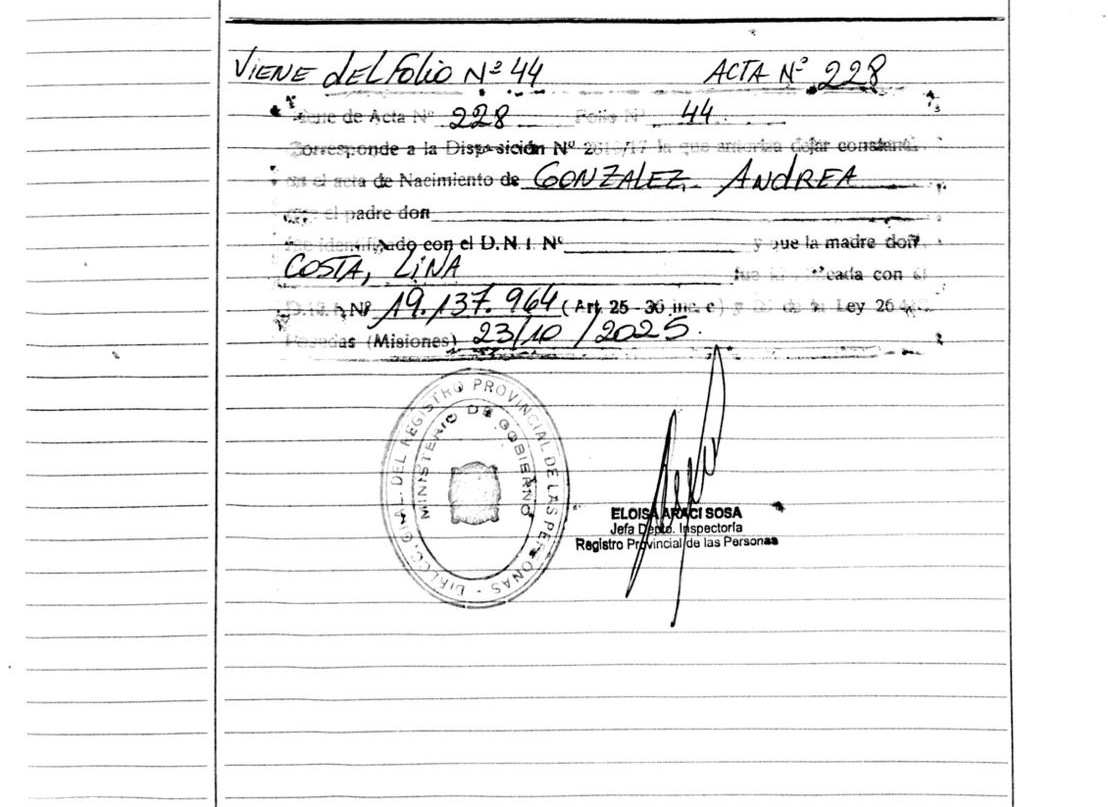 VIENE del Folio Nº 44 ACTA Nº 228
Viene de Acta Nº 228 Folio Nº 44
Corresponde a la Disposición Nº 2616/17 la que autoriza dejar constancia
en el acta de Nacimiento de GONZALEZ ANDREA
que el padre don
fue identificado con el D.N.I. Nº y que la madre doñ
COSTA, LINA fue identificada con el
D.N.I. Nº 19.137.964 (Art. 25 - 36 inc. c) y de la Ley
Posadas (Misiones) 23/10/2025.
DIRECC. GRAL. DEL REGISTRO PROVINCIAL DE LAS PERSONAS
MINISTERIO DE GOBIERNO
ELOISA ARACI SOSA
Jefa Depto. Inspectoría
Registro Provincial de las Personas